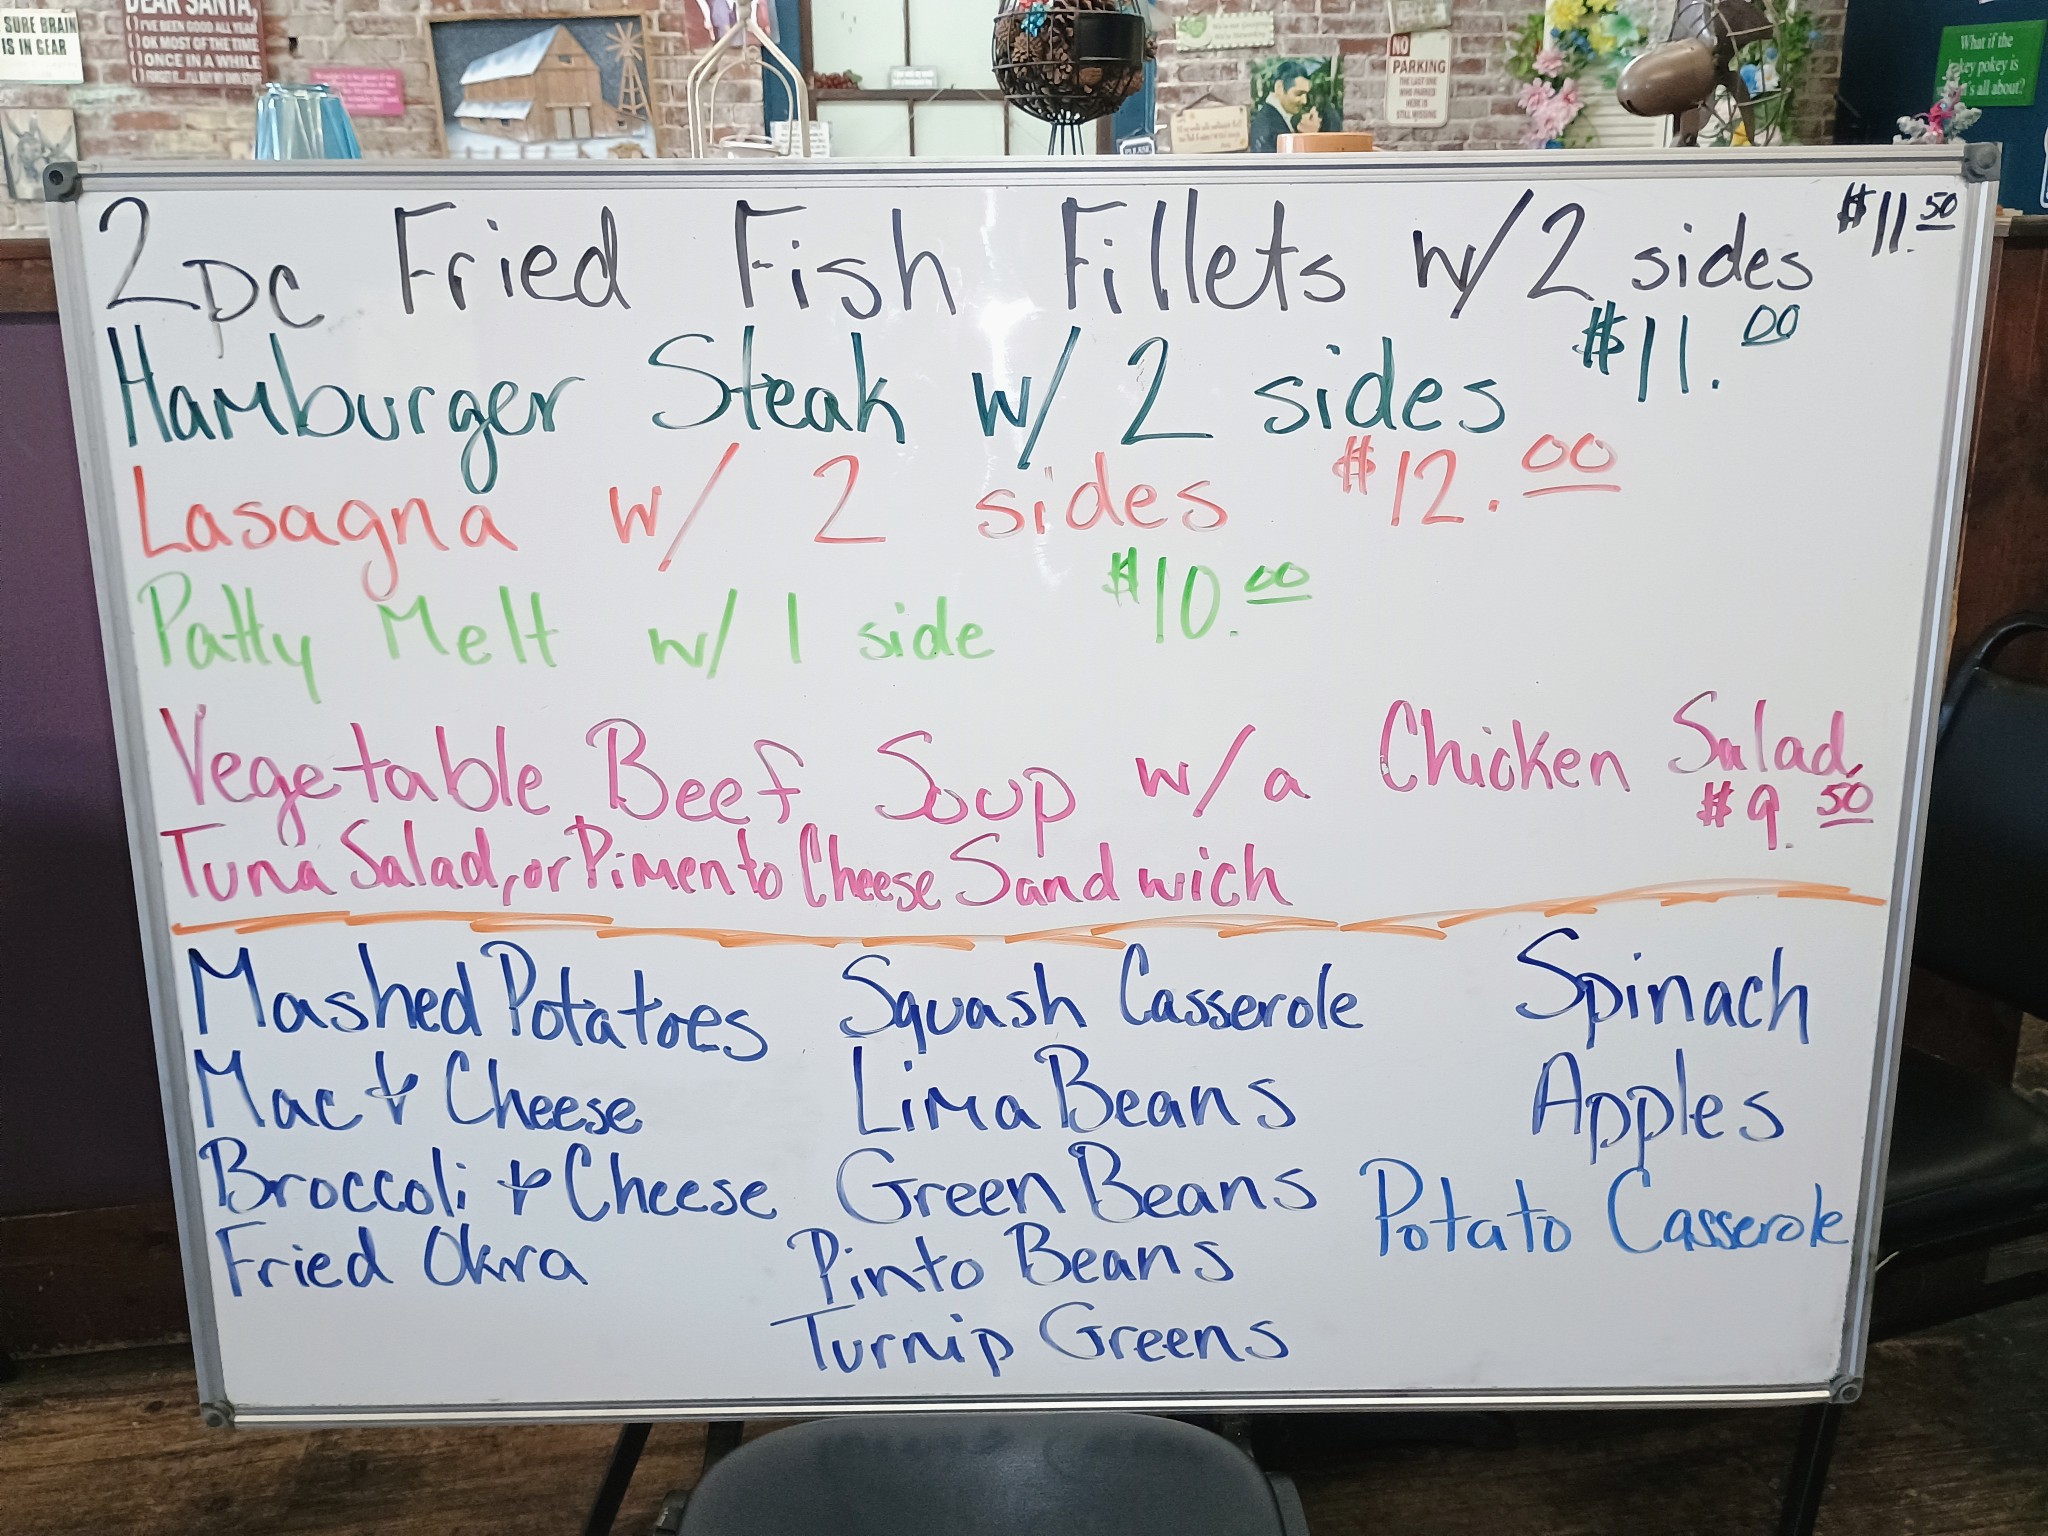 SURE BRAIN
IS IN GEAR
DEAR SANTA,
( ) I'VE BEEN GOOD ALL YEAR
( ) OK MOST OF THE TIME
( ) ONCE IN A WHILE
NO
PARKING
THE LAST ONE
WHO PARKED
HERE IS
STILL MISSING
What if the
pokey is
all about?
2pc Fried Fish Fillets w/2 sides $11.50
Hamburger Steak w/ 2 sides $11.00
Lasagna w/ 2 sides $12.00
Patty Melt w/ 1 side $10.00
Vegetable Beef Soup w/a Chicken Salad,
$9.50
Tuna Salad, or Pimento Cheese Sandwich
Mashed Potatoes Squash Casserole Spinach
Mac & Cheese Lima Beans Apples
Broccoli & Cheese Green Beans Potato Casserole
Fried Okra Pinto Beans
Turnip Greens